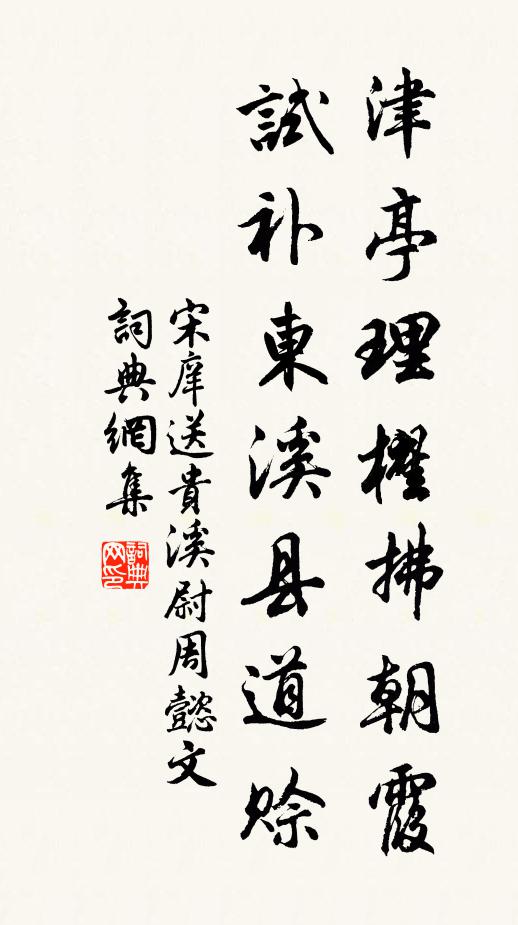 津亭理櫂拂朝霞
試补東溪县道赊
宋庠送貴溪尉周懿文
詞典網集
詞典网印